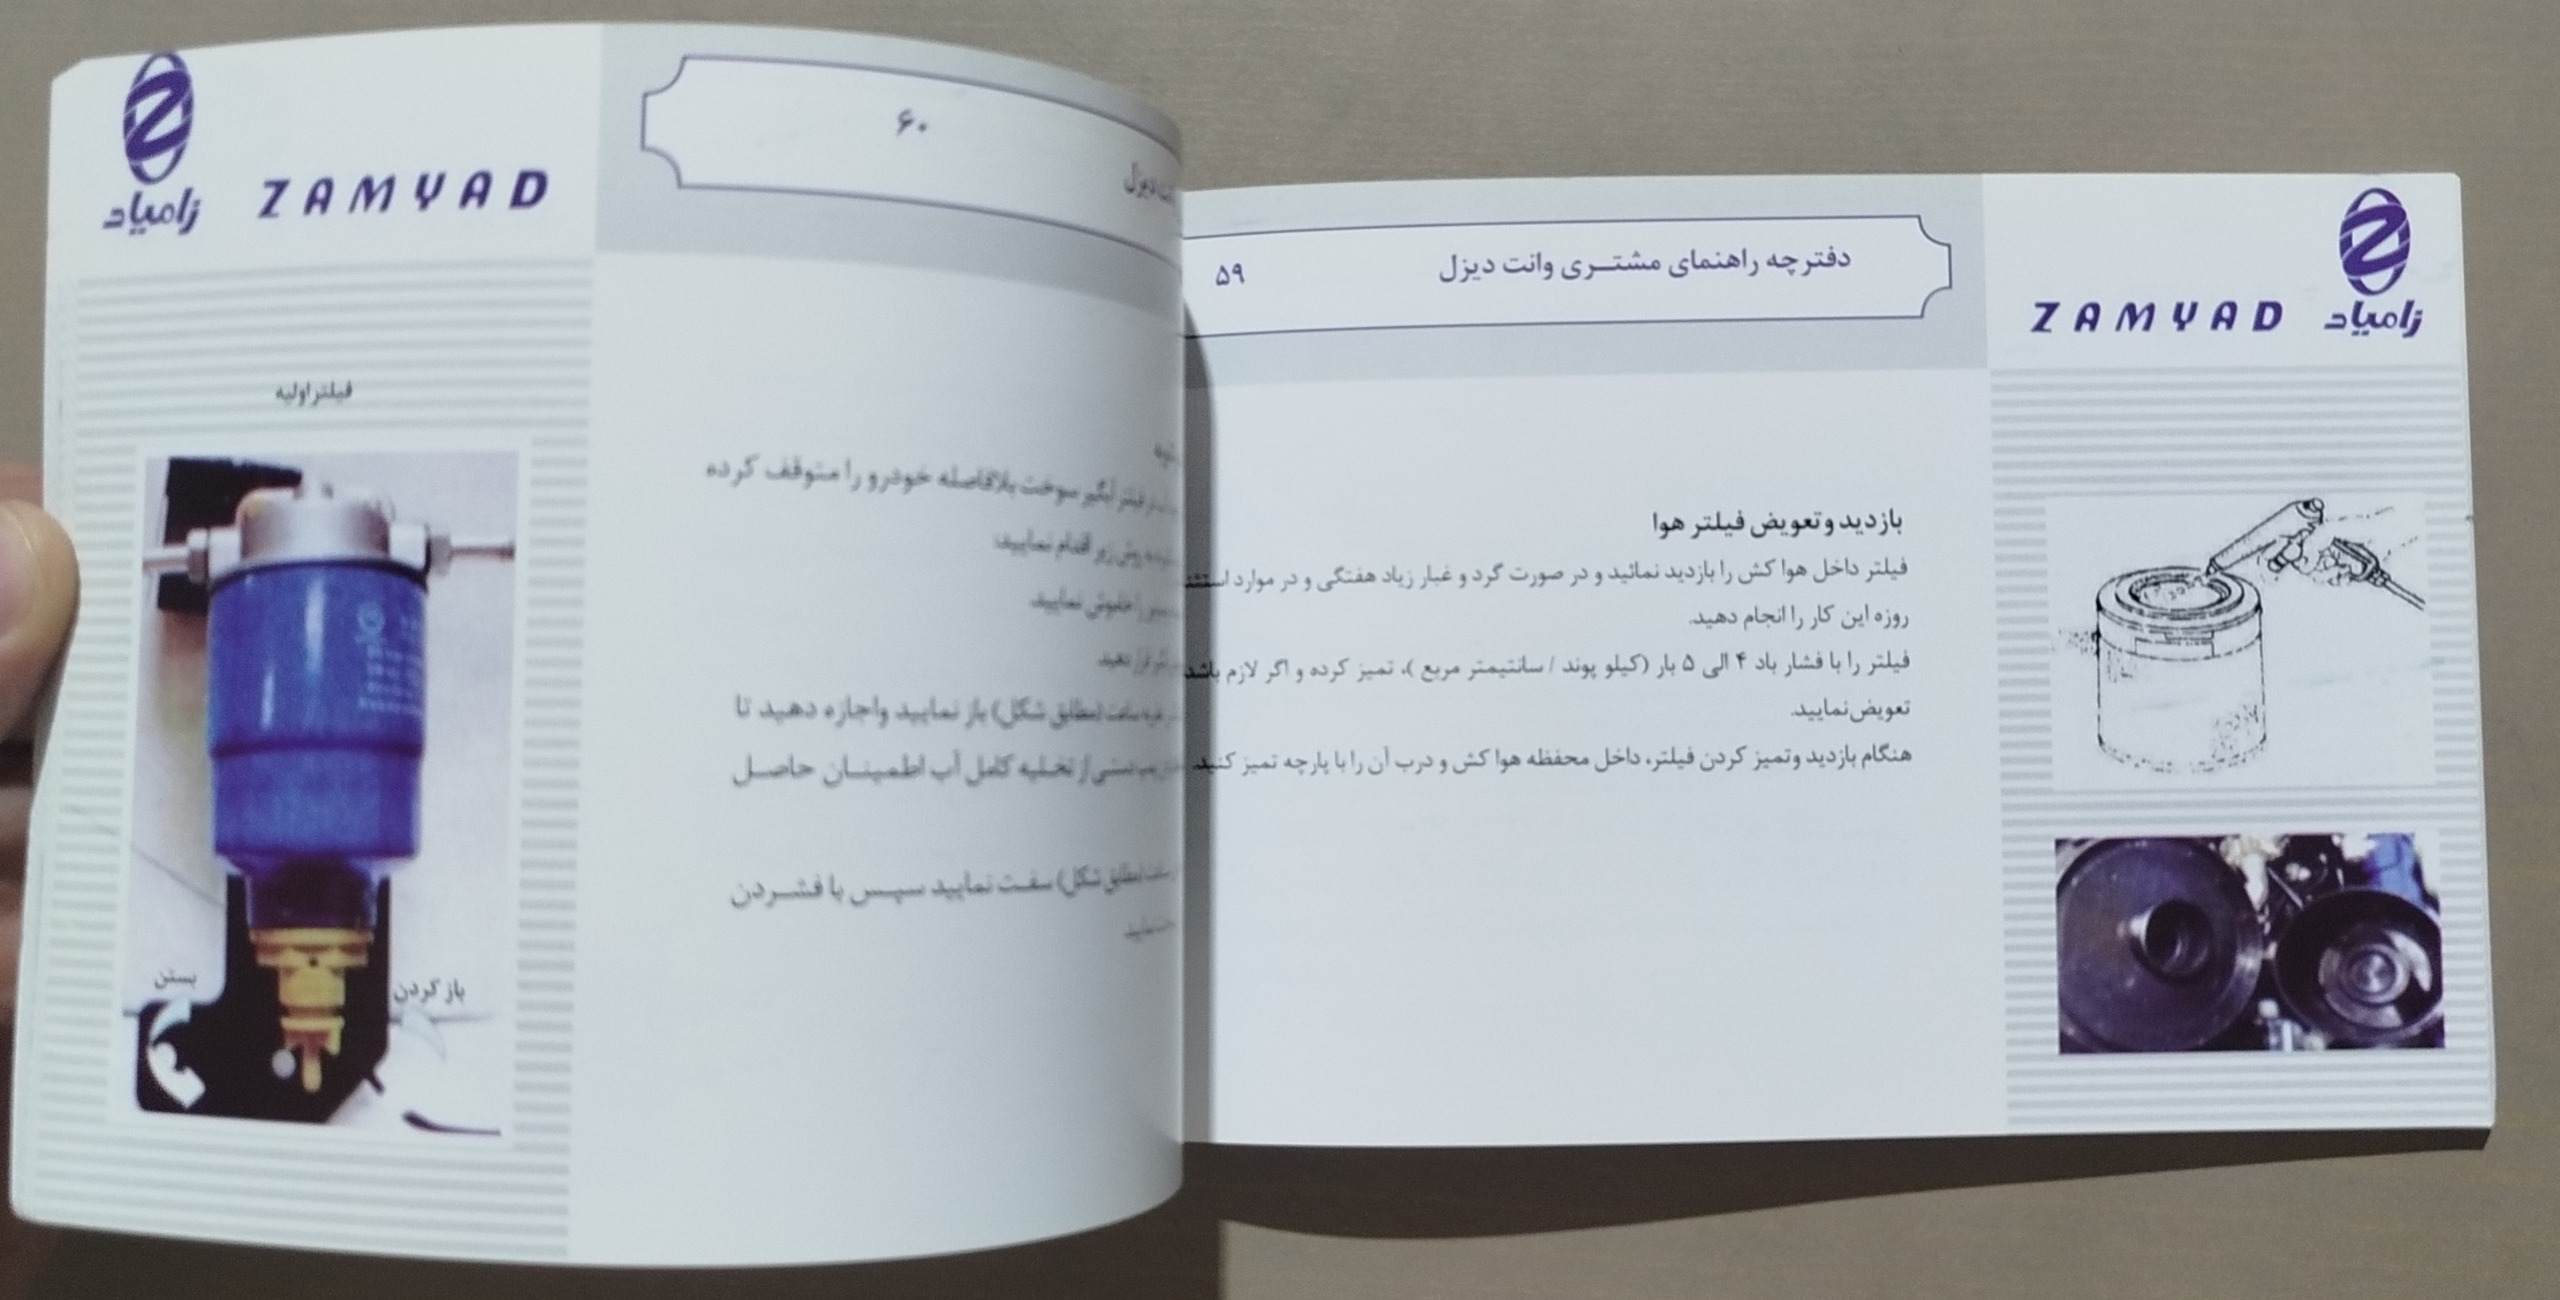 زامیاد
ZAMYAD
دفترچه راهنمای مشتری وانت دیزل
۵۹
بازدید و تعویض فیلتر هوا
فیلتر داخل هوا کش را بازدید نمائید و در صورت گرد و غبار زیاد هفتگی و در موارد
روزه این کار را انجام دهید.
فیلتر را با فشار باد ۴ الی ۵ بار (کیلو پوند / سانتیمتر مربع )، تمیز کرده و اگر لازم باشد
تعویض نمایید.
هنگام بازدید وتمیز کردن فیلتر، داخل محفظه هوا کش و درب آن را با پارچه تمیز کنید.
زامیاد
ZAMYAD
۶۰
دیزل
فیلتر اولیه
فیلتر آبگیر سوخت بلافاصله خودرو را متوقف کرده
روش زیر اقدام نمایید:
را خاموش نمایید.
قرار دهید.
ساعت (مطابق شکل) باز نمایید واجازه دهید تا
دستی از تخلیه کامل آب اطمینان حاصل
ساعت (مطابق شکل) سفت نمایید سپس با فشردن
نمایید.
بستن
باز کردن